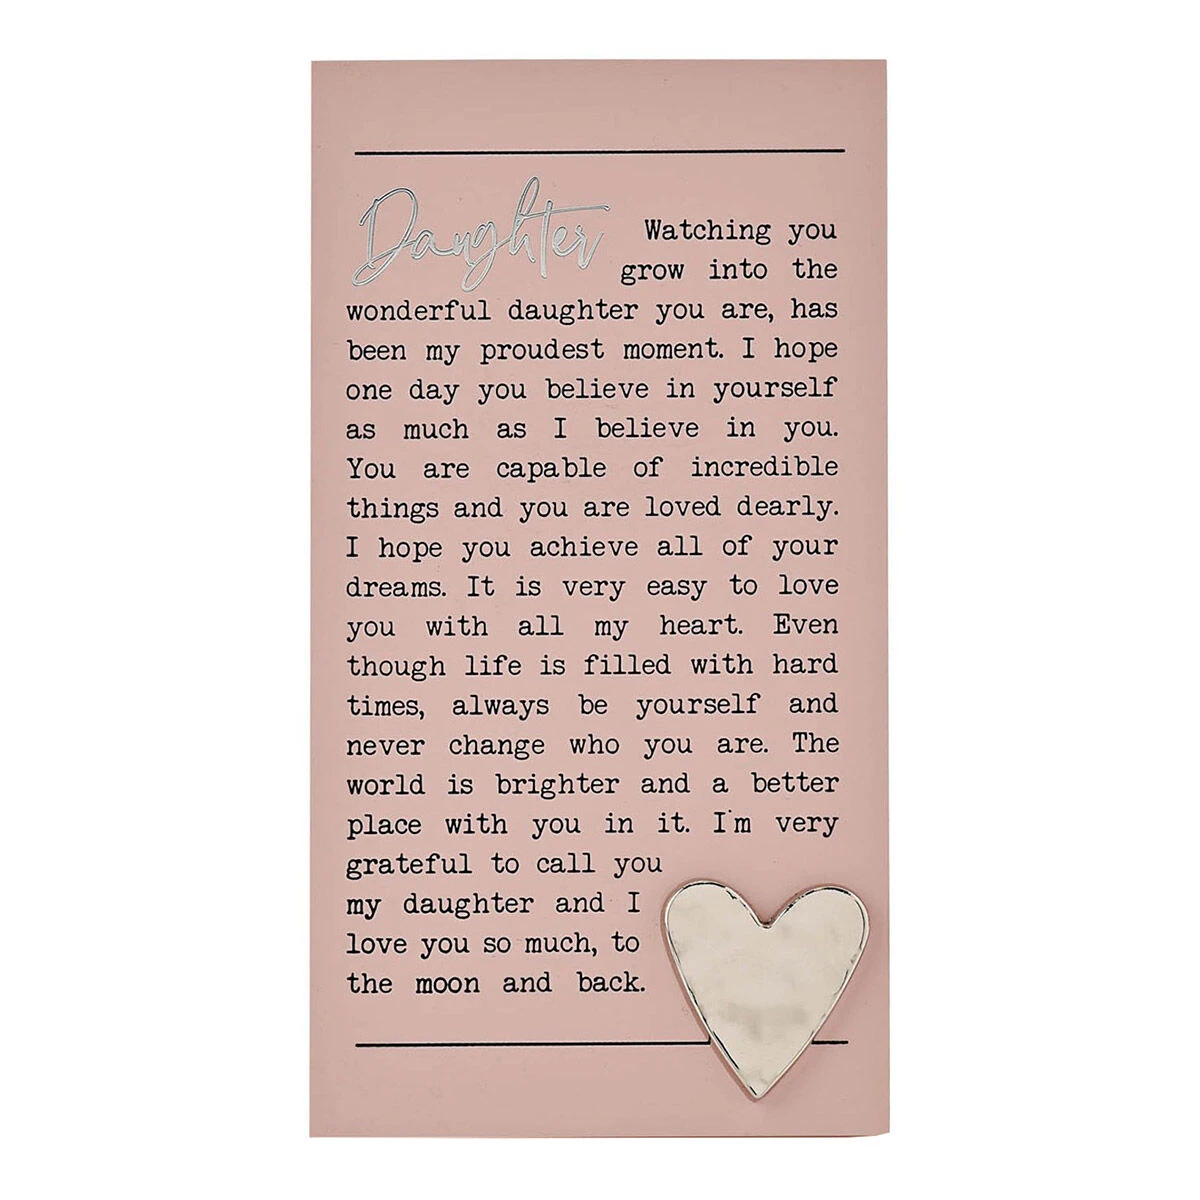 Daughter Watching you
grow into the
wonderful daughter you are, has
been my proudest moment. I hope
one day you believe in yourself
as much as I believe in you.
You are capable of incredible
things and you are loved dearly.
I hope you achieve all of your
dreams. It is very easy to love
you with all my heart. Even
though life is filled with hard
times, always be yourself and
never change who you are. The
world is brighter and a better
place with you in it. I'm very
grateful to call you
my daughter and I
love you so much, to
the moon and back.